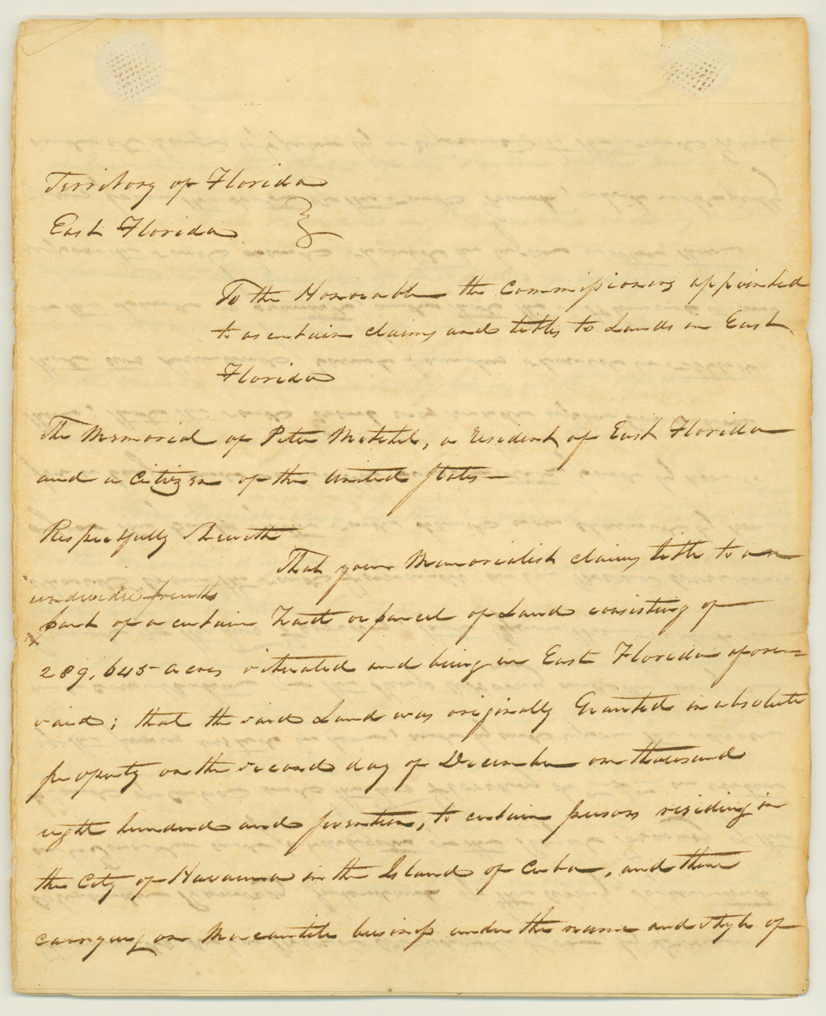 Territory of Florida
East Florida
To the Honorable the Commissioners appointed
to ascertain claims and titles to Lands in East
Florida
The Memorial of Peter Mitchel, a resident of East Florida
and a Citizen of the United States—
Respectfully Sheweth
That your Memorialist claims title to an
undivided fourth
part of a certain Tract or parcel of Land consisting of
289,645 acres situated and being in East Florida afore=
said; that the said Land was originally Granted in absolute
property on the second day of December one thousand
eight hundred and seventeen, to certain persons residing in
the City of Havanna in the Island of Cuba, and there
carrying on Mercantile business under the name and style of